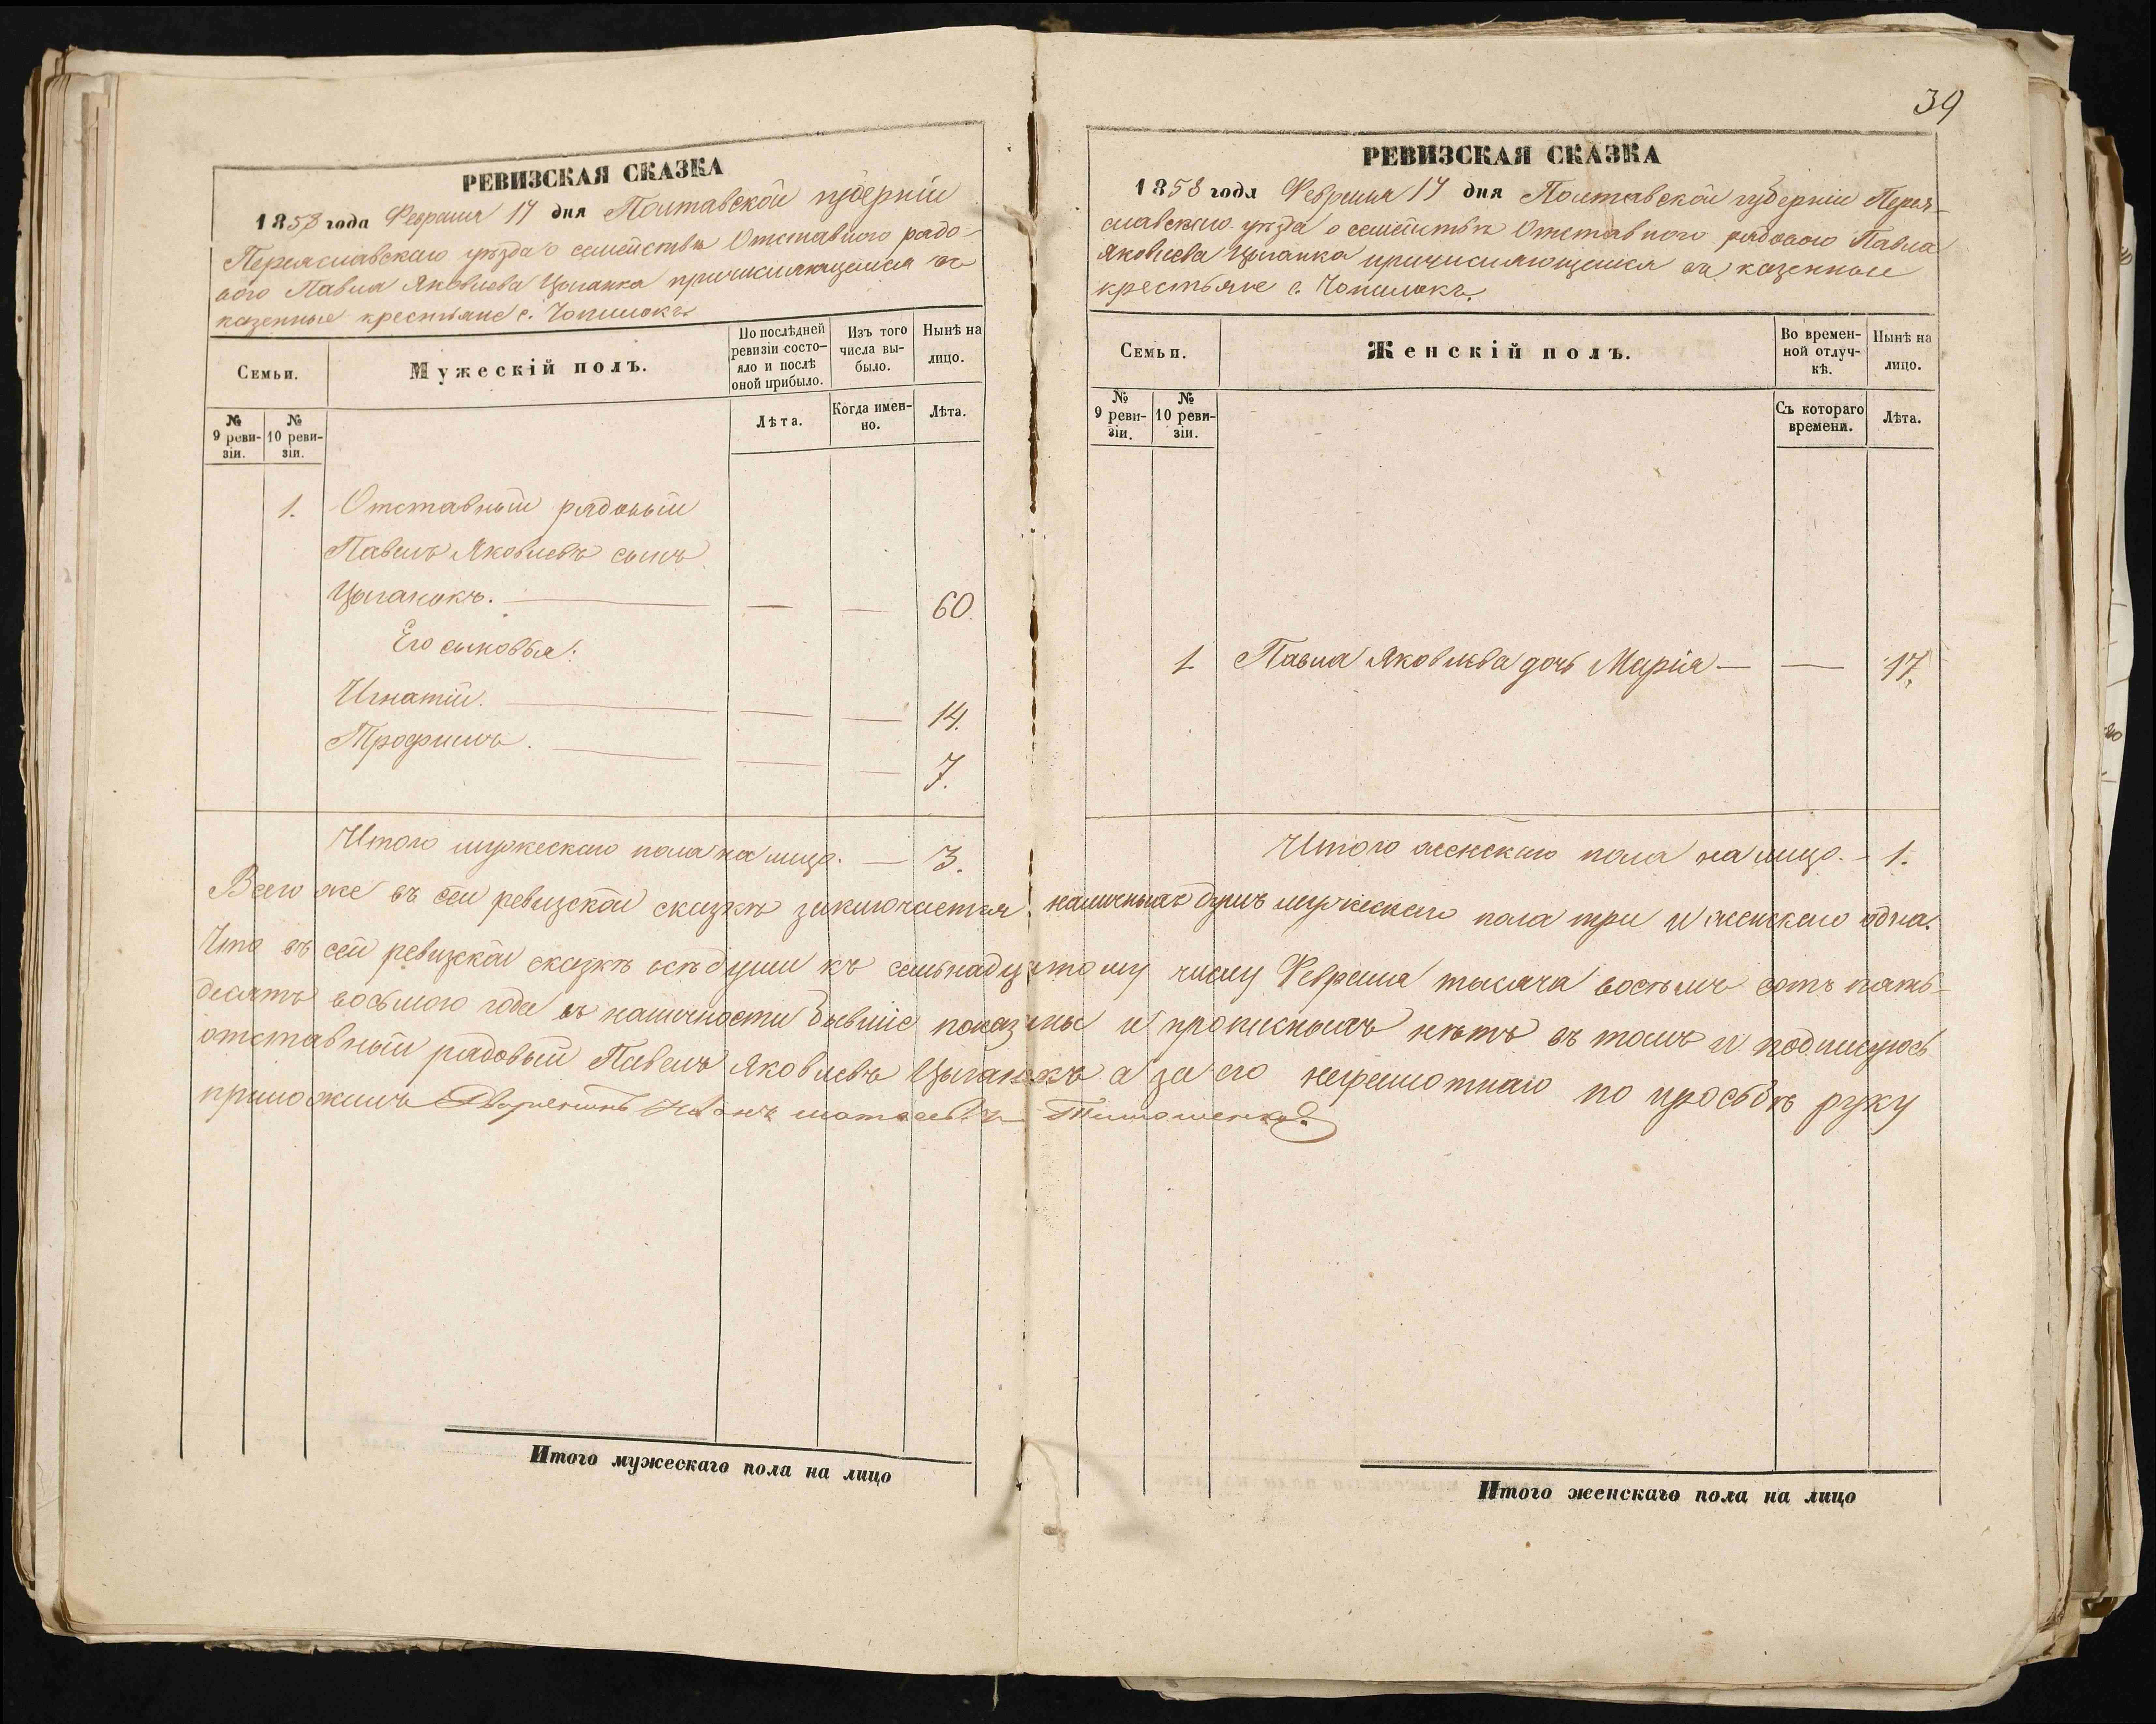 РЕВИЗСКАЯ СКАЗКА
1858 года Февраля 17 дня Полтавской губерніи
Переяславскаго уѣзда о семействѣ Отставного рядо-
вого Павла Яковлева Цыганка причисляющемся въ
казенные крестьяне с. Чопилокъ
Семьи.
Мужескій полъ.
По послѣдней ревизіи состо-
яло и послѣ оной прибыло.
Изъ того числа вы-
было.
Нынѣ на лицо.
№ 9 реви-
зіи.
№ 10 реви-
зіи.
Лѣта.
Когда имен-
но.
Лѣта.
1. Отставный рядовый
Павелъ Яковлевъ сынъ
Цыганокъ. — — — 60.
Его сыновья:
Игнатій. — — — 14.
Трофимъ. — — — 7.
Итого мужескаго пола на лицо. — 3.
39
РЕВИЗСКАЯ СКАЗКА
1858 года Февраля 17 дня Полтавской губерніи Перея-
славскаго уѣзда о семействѣ Отставного рядового Павла
Яковлева Цыганка причисляющемся въ казенные
крестьяне с. Чопилокъ.
Семьи.
Женскій полъ.
Во времен-
ной отлуч-
кѣ.
Нынѣ на лицо.
№ 9 реви-
зіи.
№ 10 реви-
зіи.
Съ котораго времени.
Лѣта.
1 Павла Яковлева дочь Марія — — 17.
Итого женскаго пола на лицо. - 1.
Всего же въ сей ревизской сказкѣ заключается наличныхъ душъ мужескаго пола три и женскаго одна.
Что въ сей ревизской сказкѣ всѣ души къ семьнадцатому числу Февраля тысяча восемь сотъ пять-
десятъ восьмого года въ наличности бывшіе показаны и прописныхъ нѣтъ въ томъ и подпишусь
отставный рядовый Павелъ Яковлевъ Цыганокъ а за его неграмотнаго по просьбѣ руку
приложилъ Дворянинъ Иванъ Тимошенко.
Итого мужескаго пола на лицо
Итого женскаго пола на лицо